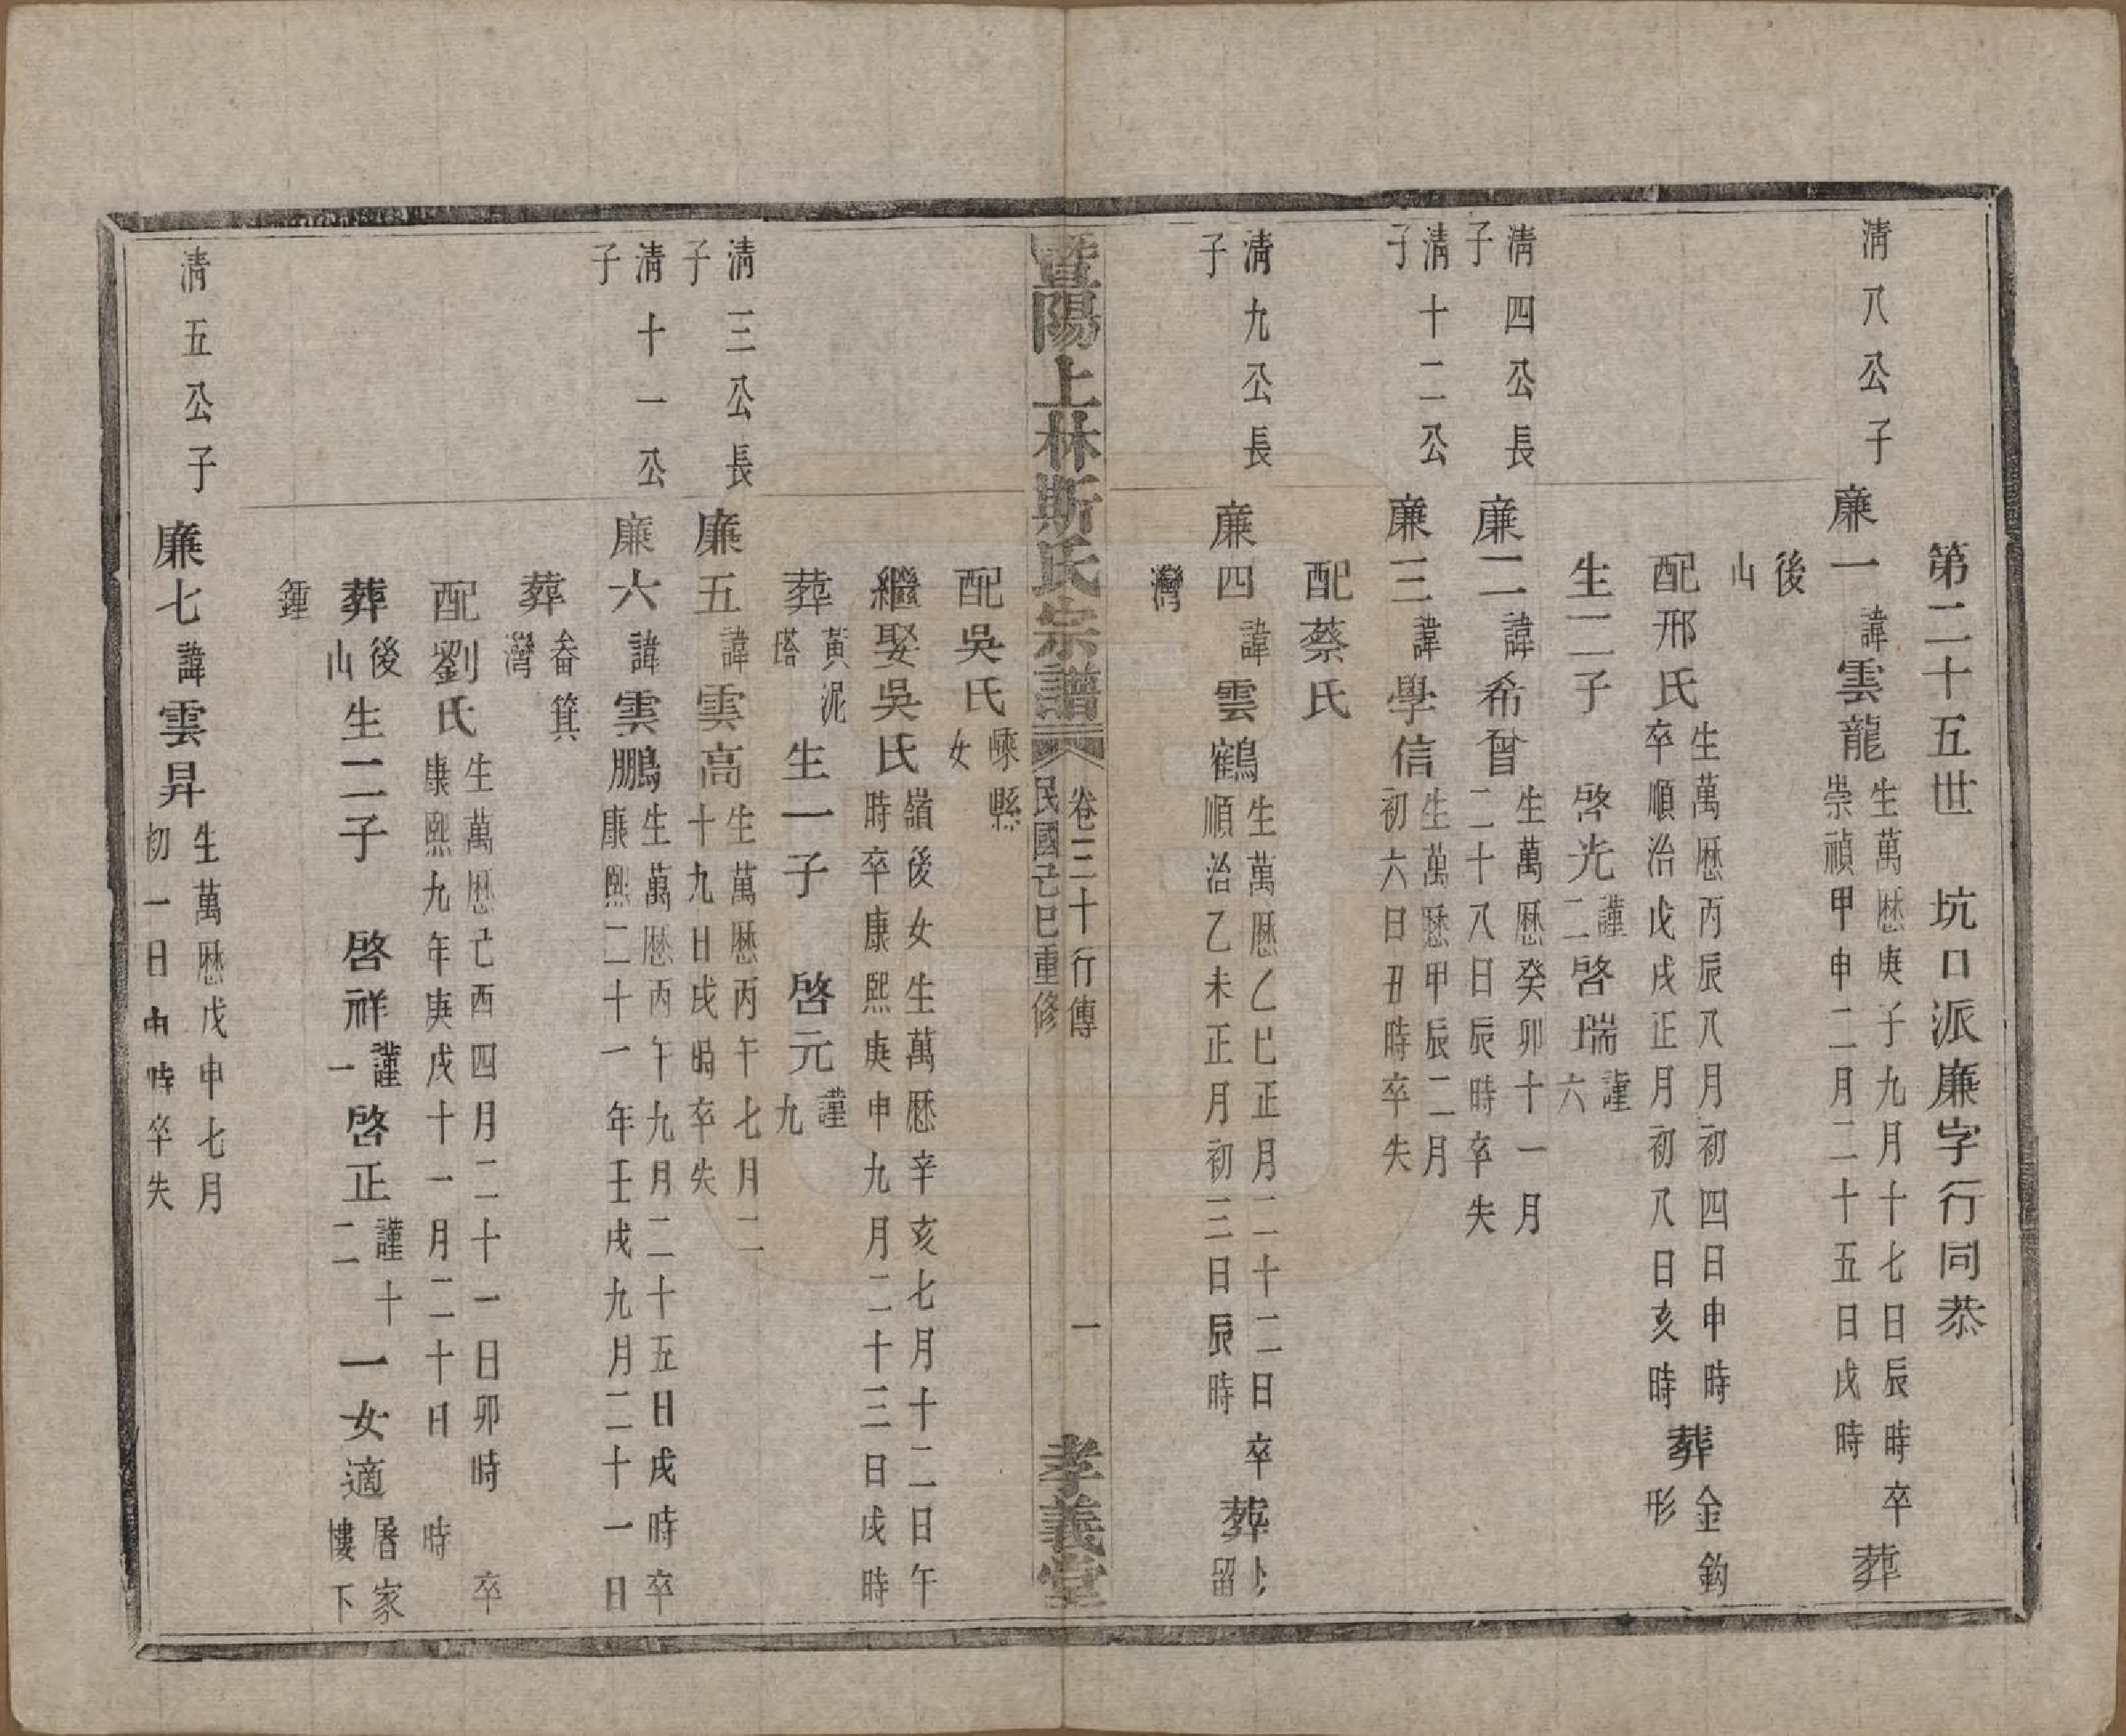 第二十五世　坑口派廉字行同恭
清八公子
廉一諱雲龍
生萬歷庚子九月十七日辰時卒
崇禎甲申二月二十五日戌時
葬
後
山
配邢氏
生萬歷丙辰八月初四日申時
卒順治戊戌正月初八日亥時
葬
金鈎
形
生二子　啓光謹二啓瑞謹六
清四公長
子
廉二諱希曾
生萬歷癸卯十一月
二十八日辰時卒失
清十二公
子
廉三諱學信
生萬歷甲辰二月
初六日丑時卒失
配蔡氏
清九公長
子
廉四諱雲鶴
生萬歷乙巳正月二十二日卒
順治乙未正月初三日辰時
葬
留
灣
暨陽上林斯氏宗譜
卷三十行傳
民國己巳重修
一
孝義堂
配吳氏
嵊縣
女
繼娶吳氏
嶺後女生萬歷辛亥七月十二日午
時卒康熙庚申九月二十三日戌時
葬
黃泥
塔
生一子　啓元謹九
清三公長
子
廉五諱雲高
生萬歷丙午七月二
十九日戌時卒失
清十一公
子
廉六諱雲鵬
生萬歷丙午九月二十五日戌時卒
康熙二十一年壬戌九月二十一日
葬
畚箕
灣
配劉氏
生萬歷己酉四月二十一日卯時　卒
康熙九年庚戌十一月二十日　時
葬
後
山
生二子　啓祥謹一啓正謹十二
一女適
屠家
樓下
鍾
清五公子
廉七諱雲昇
生萬歷戊申七月
初一日　時卒失